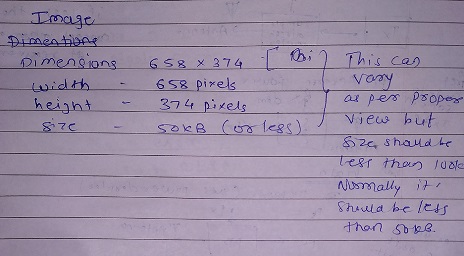 Image
Dimentions
Dimensions 658 × 374
width - 658 pixels
height - 374 pixels
size - 50kB (or less)
This can
vary
as per proper
view but
size should be
less than 100k
Normally it
should be less
than 50kB.